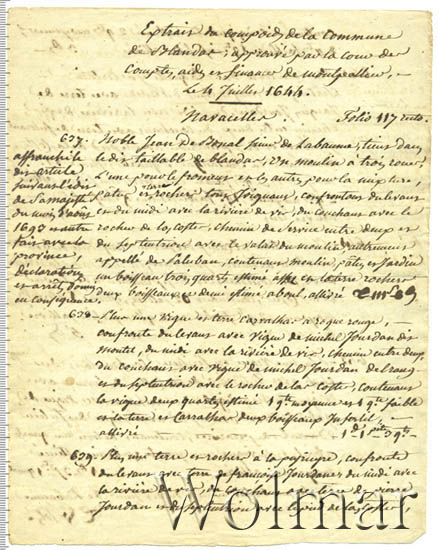 Extrait du compoids de la Commune
de Blandas, approuvé par la cour des
Comptes, aides et finances de montpellier,
Le 4 Juillet 1644.
Navacelles. Folio 117 verto.
637. Noble Jean de Bonal sieur de Labaume, tient dans
le dit taillable de blandas, Un moulin à trois roues,
L'une pour le froment et les autres pour la mixture,
et rocher tous Joignans, confrontans du levant
et du midi avec la rivière de vis, du couchant avec le
rocher de la Coste, chemin de service entre deux et
du septentrion avec le valat du moulin autrement
appellé de contenant moulin, patus et Jardin
un boisseau trois quarts estimé et la terre rocher
deux boisseaux et demi estimé allivré
affranchi le
dit article
suivant l'édit
de sa majesté
du mois d'aout
1693 et autre
fait avec la
province,
déclarations
et arrêt, donnés
en conséquence,
638. Plus une vigne et terre à roque rouge,
confronte du levant avec vigne de michel Jourdan des
montet, du midi avec la rivière de vis, chemin entre deux,
du couchant avec vigne de michel Jourdan
et du septentrion avec le rocher de la Coste, contenant
la vigne deux quartes estimé 1 qte moyenne et 1 qte faible
et la terre et deux boisseaux
allivré
639. Plus une terre et rocher à la confronte
du levant avec terre de françois Jourdan et du midi avec
la rivière de vis, du couchant avec terre de pierre
Jourdan et du septentrion avec
Wolmar